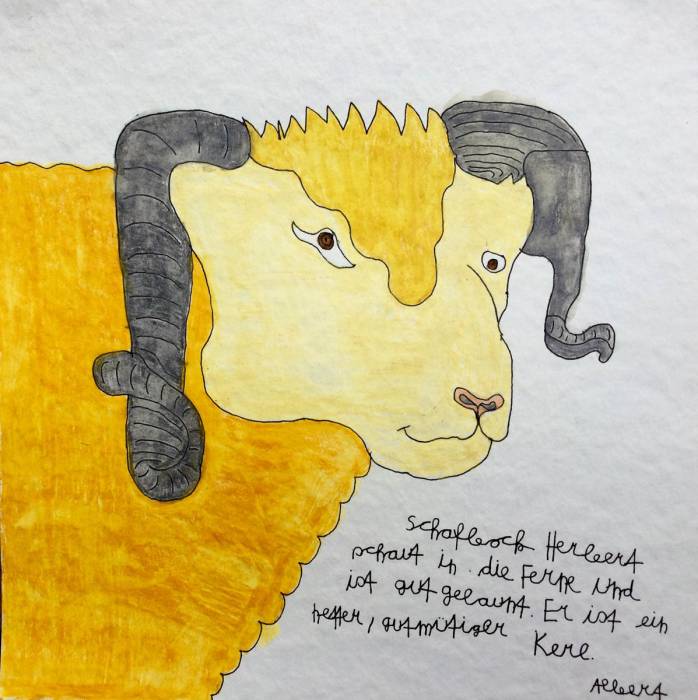 Schafbock Herbert
schaut in die Ferne und
ist gut gelaunt. Er ist ein
netter, gutmütiger Kerl.
Albert